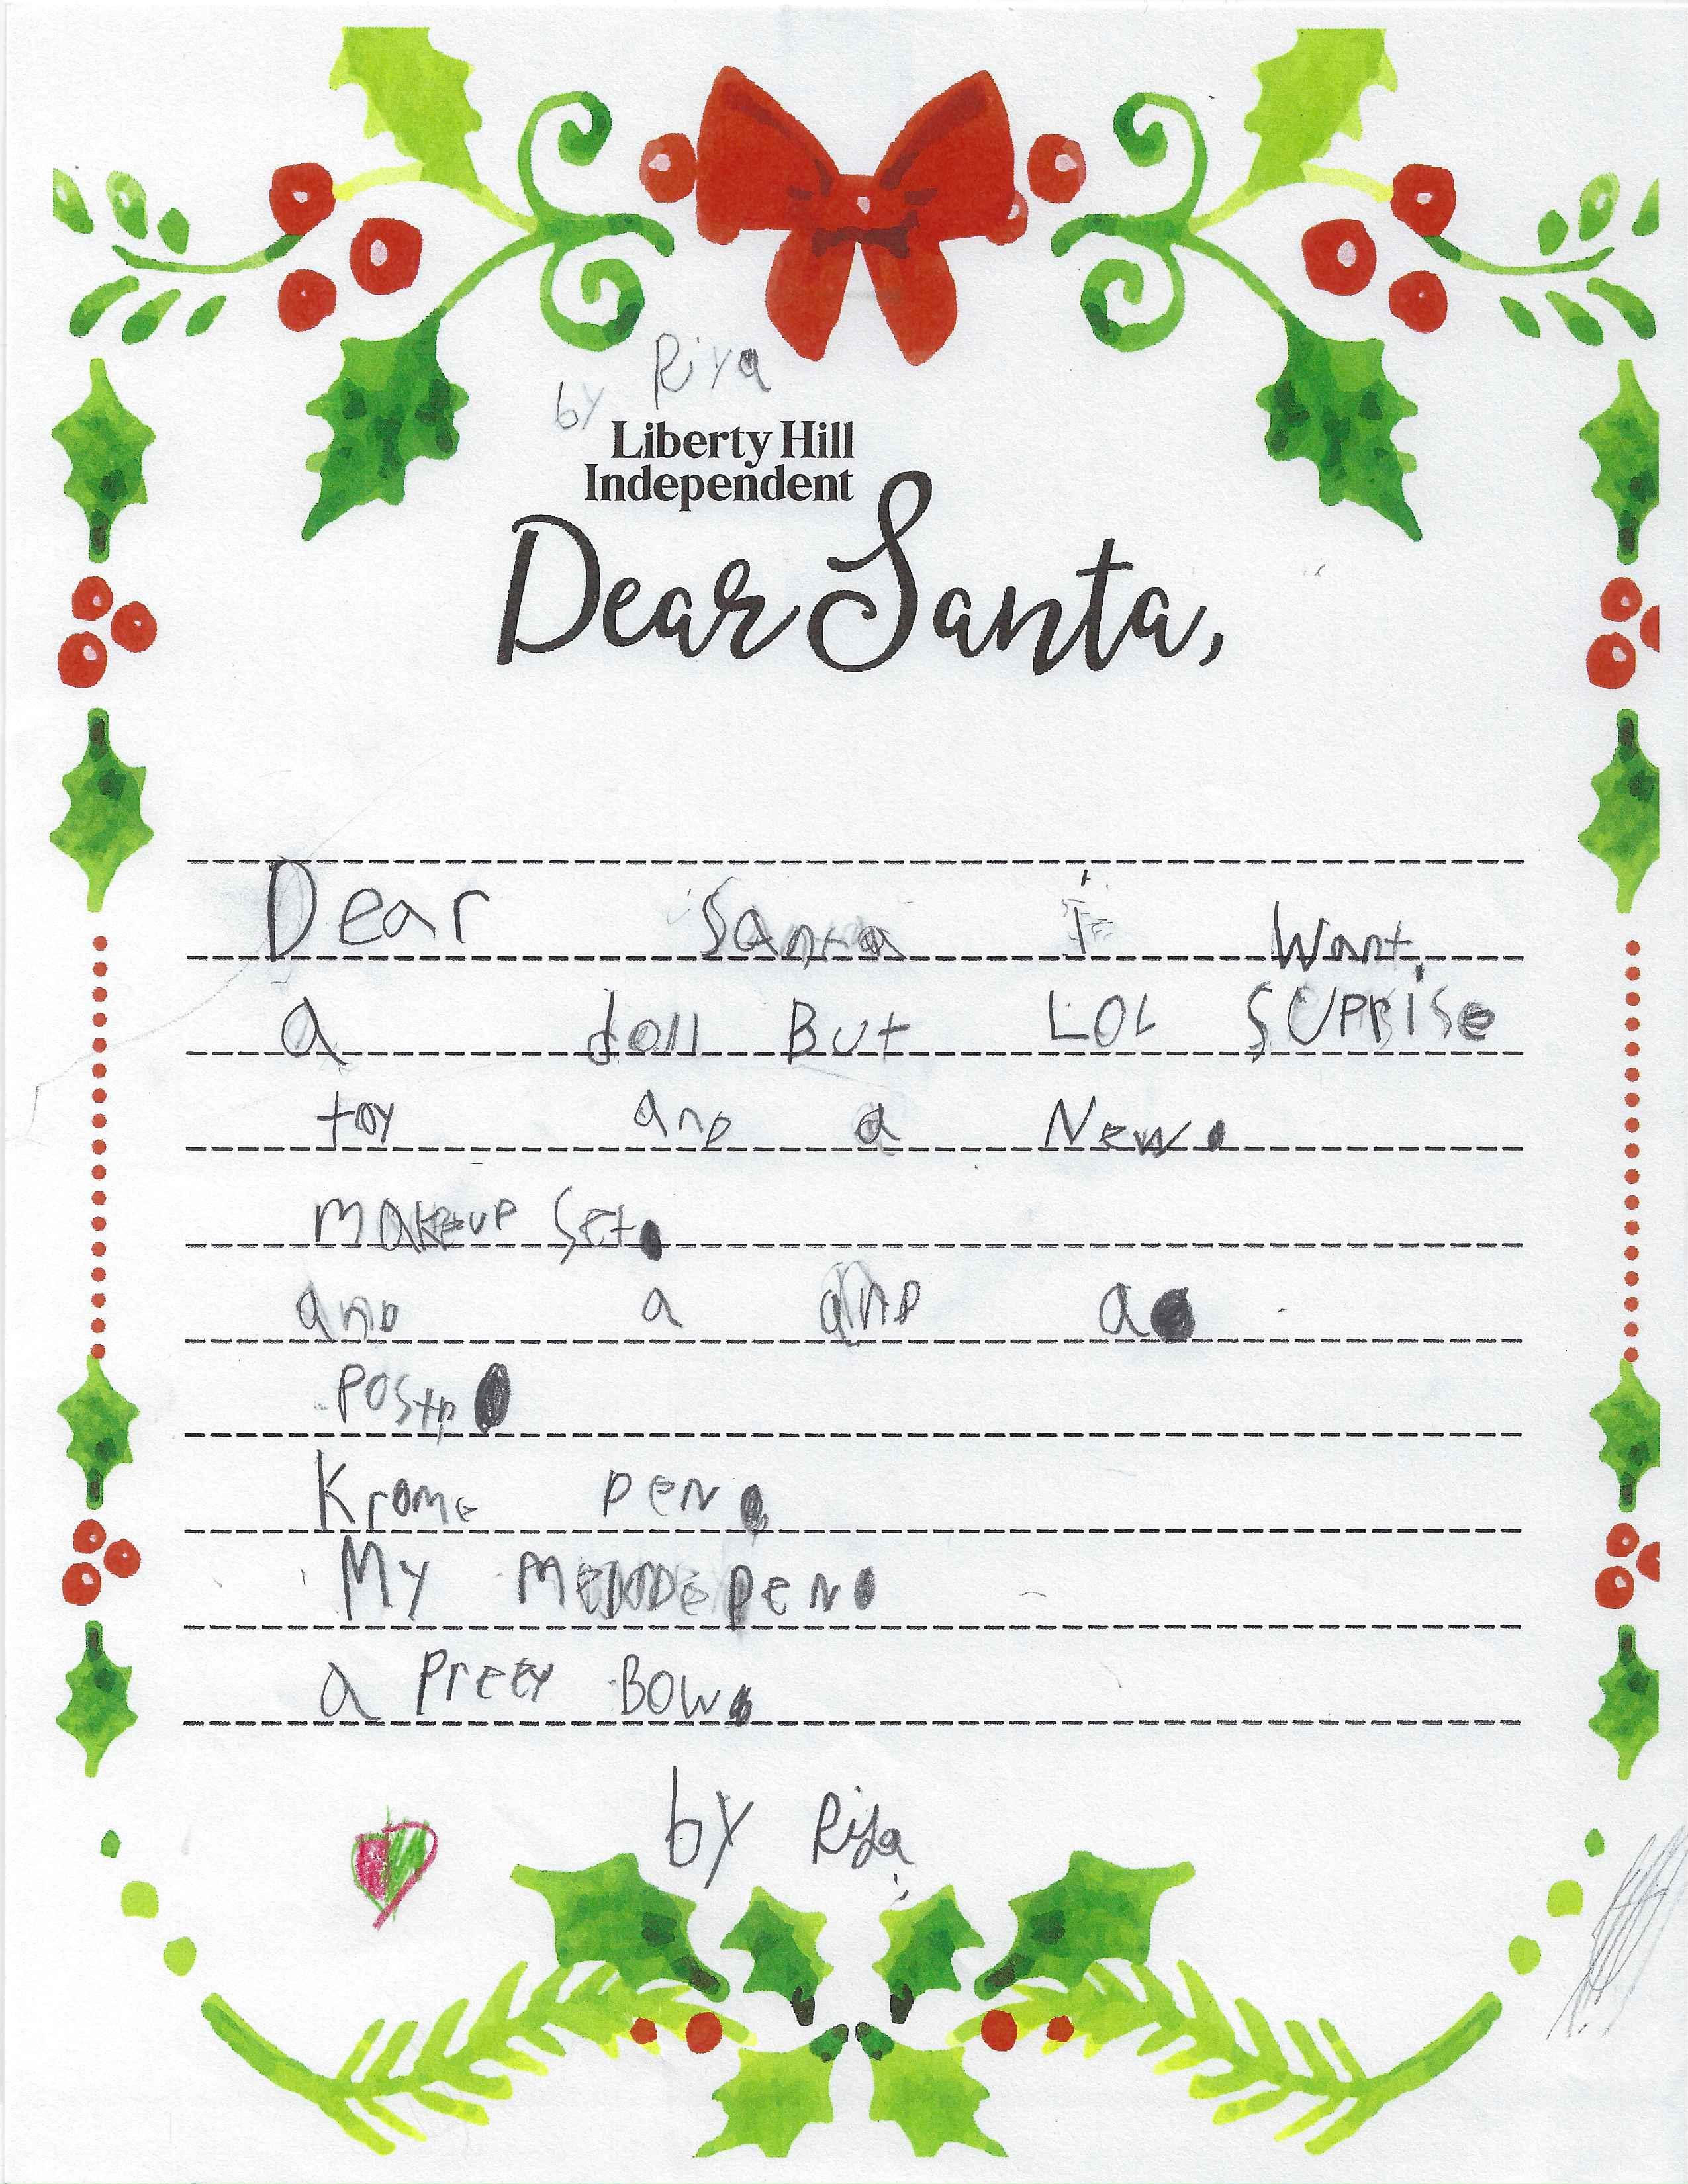 by Riya
Liberty Hill
Independent
Dear Santa,
Dear Santa I Want.
a doll But LOL SUPrise
toy and a New.
makeup Set.
and a and a
Krome pen.
My pen.
a Preey Bow.
by Riya